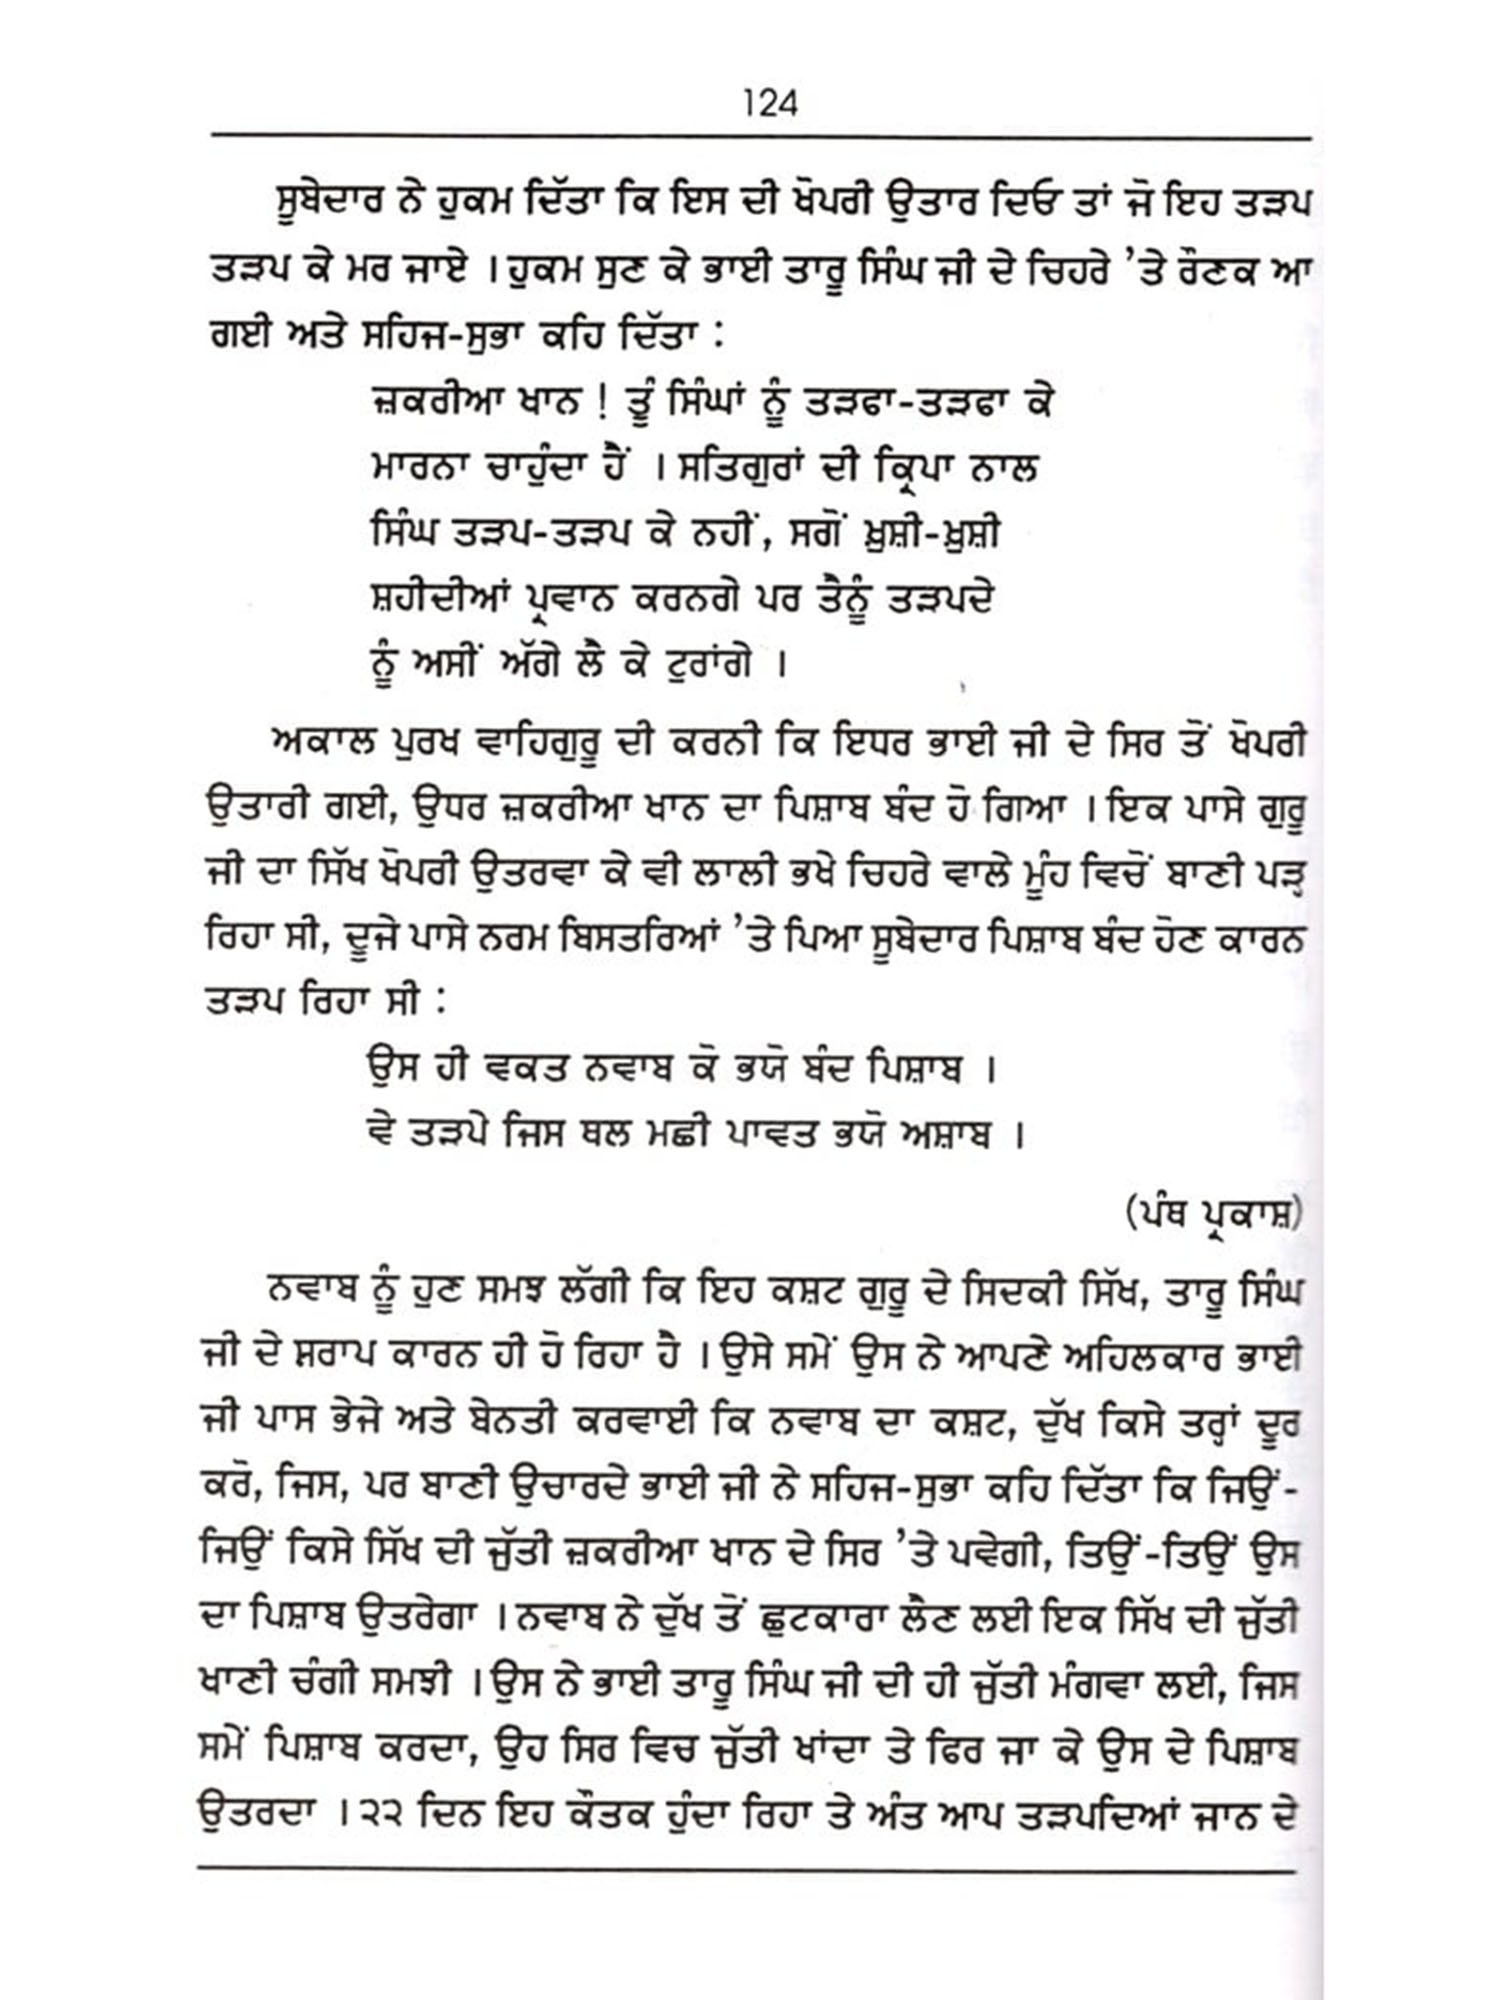 124
ਸੂਬੇਦਾਰ ਨੇ ਹੁਕਮ ਦਿੱਤਾ ਕਿ ਇਸ ਦੀ ਖੋਪਰੀ ਉਤਾਰ ਦਿਓ ਤਾਂ ਜੋ ਇਹ ਤੜਪ
ਤੜਪ ਕੇ ਮਰ ਜਾਏ । ਹੁਕਮ ਸੁਣ ਕੇ ਭਾਈ ਤਾਰੂ ਸਿੰਘ ਜੀ ਦੇ ਚਿਹਰੇ ’ਤੇ ਰੌਣਕ ਆ
ਗਈ ਅਤੇ ਸਹਿਜ-ਸੁਭਾ ਕਹਿ ਦਿੱਤਾ :
ਜ਼ਕਰੀਆ ਖਾਨ ! ਤੂੰ ਸਿੰਘਾਂ ਨੂੰ ਤੜਫਾ-ਤੜਫਾ ਕੇ
ਮਾਰਨਾ ਚਾਹੁੰਦਾ ਹੈਂ । ਸਤਿਗੁਰਾਂ ਦੀ ਕ੍ਰਿਪਾ ਨਾਲ
ਸਿੰਘ ਤੜਪ-ਤੜਪ ਕੇ ਨਹੀਂ, ਸਗੋਂ ਖ਼ੁਸ਼ੀ-ਖ਼ੁਸ਼ੀ
ਸ਼ਹੀਦੀਆਂ ਪ੍ਰਵਾਨ ਕਰਨਗੇ ਪਰ ਤੈਨੂੰ ਤੜਪਦੇ
ਨੂੰ ਅਸੀਂ ਅੱਗੇ ਲੈ ਕੇ ਟੁਰਾਂਗੇ ।
ਅਕਾਲ ਪੁਰਖ ਵਾਹਿਗੁਰੂ ਦੀ ਕਰਨੀ ਕਿ ਇਧਰ ਭਾਈ ਜੀ ਦੇ ਸਿਰ ਤੋਂ ਖੋਪਰੀ
ਉਤਾਰੀ ਗਈ, ਉਧਰ ਜ਼ਕਰੀਆ ਖਾਨ ਦਾ ਪਿਸ਼ਾਬ ਬੰਦ ਹੋ ਗਿਆ । ਇਕ ਪਾਸੇ ਗੁਰੂ
ਜੀ ਦਾ ਸਿੱਖ ਖੋਪਰੀ ਉਤਰਵਾ ਕੇ ਵੀ ਲਾਲੀ ਭਖੇ ਚਿਹਰੇ ਵਾਲੇ ਮੂੰਹ ਵਿਚੋਂ ਬਾਣੀ ਪੜ੍ਹ
ਰਿਹਾ ਸੀ, ਦੂਜੇ ਪਾਸੇ ਨਰਮ ਬਿਸਤਰਿਆਂ ’ਤੇ ਪਿਆ ਸੂਬੇਦਾਰ ਪਿਸ਼ਾਬ ਬੰਦ ਹੋਣ ਕਾਰਨ
ਤੜਪ ਰਿਹਾ ਸੀ :
ਉਸ ਹੀ ਵਕਤ ਨਵਾਬ ਕੋ ਭਯੋ ਬੰਦ ਪਿਸ਼ਾਬ ।
ਵੇ ਤੜਪੇ ਜਿਸ ਥਲ ਮਛੀ ਪਾਵਤ ਭਯੋ ਅਸ਼ਾਬ ।
(ਪੰਥ ਪ੍ਰਕਾਸ਼)
ਨਵਾਬ ਨੂੰ ਹੁਣ ਸਮਝ ਲੱਗੀ ਕਿ ਇਹ ਕਸ਼ਟ ਗੁਰੂ ਦੇ ਸਿਦਕੀ ਸਿੱਖ, ਤਾਰੂ ਸਿੰਘ
ਜੀ ਦੇ ਸ਼ਰਾਪ ਕਾਰਨ ਹੀ ਹੋ ਰਿਹਾ ਹੈ । ਉਸੇ ਸਮੇਂ ਉਸ ਨੇ ਆਪਣੇ ਅਹਿਲਕਾਰ ਭਾਈ
ਜੀ ਪਾਸ ਭੇਜੇ ਅਤੇ ਬੇਨਤੀ ਕਰਵਾਈ ਕਿ ਨਵਾਬ ਦਾ ਕਸ਼ਟ, ਦੁੱਖ ਕਿਸੇ ਤਰ੍ਹਾਂ ਦੂਰ
ਕਰੋ, ਜਿਸ, ਪਰ ਬਾਣੀ ਉਚਾਰਦੇ ਭਾਈ ਜੀ ਨੇ ਸਹਿਜ-ਸੁਭਾ ਕਹਿ ਦਿੱਤਾ ਕਿ ਜਿਉਂ-
ਜਿਉਂ ਕਿਸੇ ਸਿੱਖ ਦੀ ਜੁੱਤੀ ਜ਼ਕਰੀਆ ਖਾਨ ਦੇ ਸਿਰ ’ਤੇ ਪਵੇਗੀ, ਤਿਉਂ-ਤਿਉਂ ਉਸ
ਦਾ ਪਿਸ਼ਾਬ ਉਤਰੇਗਾ । ਨਵਾਬ ਨੇ ਦੁੱਖ ਤੋਂ ਛੁਟਕਾਰਾ ਲੈਣ ਲਈ ਇਕ ਸਿੱਖ ਦੀ ਜੁੱਤੀ
ਖਾਣੀ ਚੰਗੀ ਸਮਝੀ । ਉਸ ਨੇ ਭਾਈ ਤਾਰੂ ਸਿੰਘ ਜੀ ਦੀ ਹੀ ਜੁੱਤੀ ਮੰਗਵਾ ਲਈ, ਜਿਸ
ਸਮੇਂ ਪਿਸ਼ਾਬ ਕਰਦਾ, ਉਹ ਸਿਰ ਵਿਚ ਜੁੱਤੀ ਖਾਂਦਾ ਤੇ ਫਿਰ ਜਾ ਕੇ ਉਸ ਦੇ ਪਿਸ਼ਾਬ
ਉਤਰਦਾ । ੨੨ ਦਿਨ ਇਹ ਕੌਤਕ ਹੁੰਦਾ ਰਿਹਾ ਤੇ ਅੰਤ ਆਪ ਤੜਪਦਿਆਂ ਜਾਨ ਦੇ